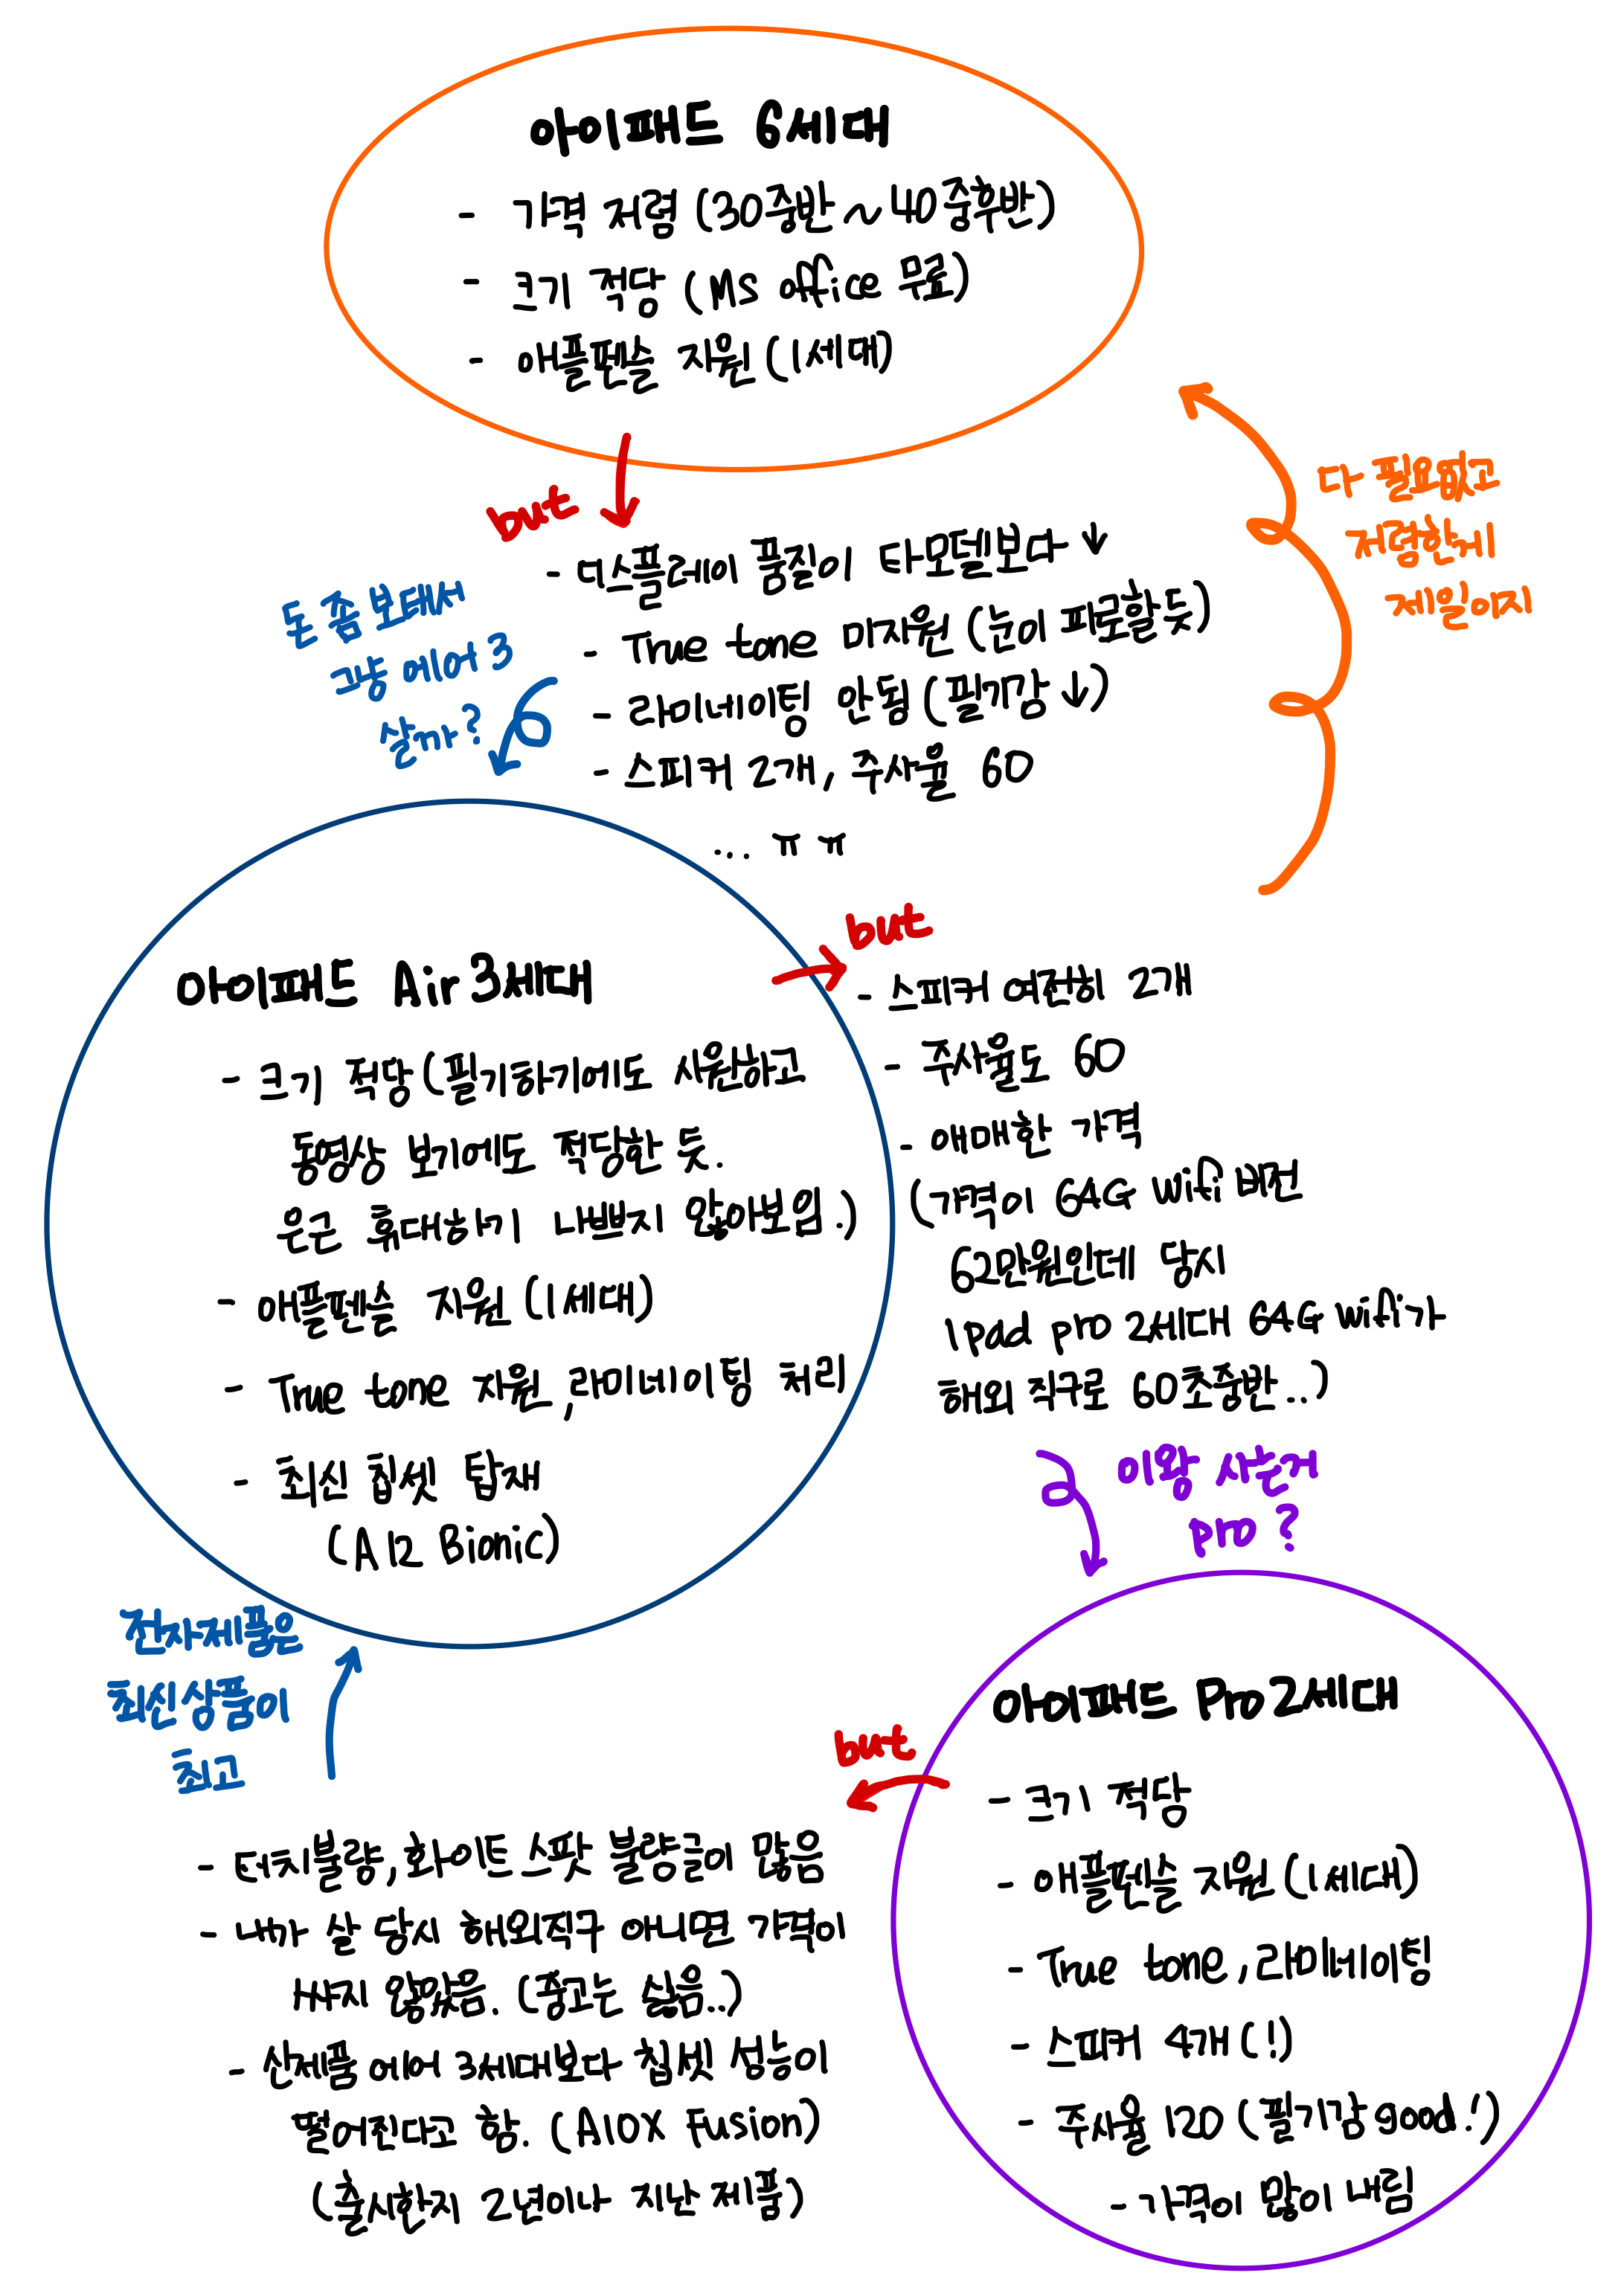 아이패드 6세대
- 가격 저렴 (30중반 ~ 40중후반)
- 크기 적당 (MS office 무료)
- 애플펜슬 지원 (1세대)
but
- 디스플레이 품질이 타모델보다 ↓
- True tone 미지원 (눈이 피로할듯)
- 라미네이팅 안됨 (필기감 ↓)
- 스피커 2개, 주사율 60
... ㅠ ㅠ
다 필요없고
저렴한게
제일이지
돈 좀 보태서
그냥 에어 3
살까?
아이패드 Air 3세대
- 크기 적당 (필기하기에도 시원하고
동영상 보기에도 적당한 듯.
은근 휴대하기 나쁘지 않아보임.)
- 애플펜슬 지원 (1세대)
- True tone 지원, 라미네이팅 처리
- 최신 칩셋 탑재
(A12 Bionic)
but
- 스피커 여전히 2개
- 주사율도 60
- 애매한 가격
(가격이 64G wifi 버전
62만원인데 당시
ipad pro 2세대 64G wifi가
해외 직구로 60초중반..)
이왕 사는거
pro ?
아이패드 Pro 2세대
- 크기 적당
- 애플펜슬 지원 (1세대)
- True tone, 라미네이팅
- 스피커 4개 (!)
- 주사율 120 (필기감 good!)
- 가격이 많이 내림
but
- 터치불량, 화이트 스팟 불량글이 많음
- 내가 살 당시 해외직구 아니면 가격이
싸지 않았음. (중고는 싫음..)
- 신제품 에어 3세대보다 칩셋 성능이
떨어진다고 함. (A10X Fusion)
(출시한지 2년이나 지난 제품)
전자제품은
최신상품이
최고